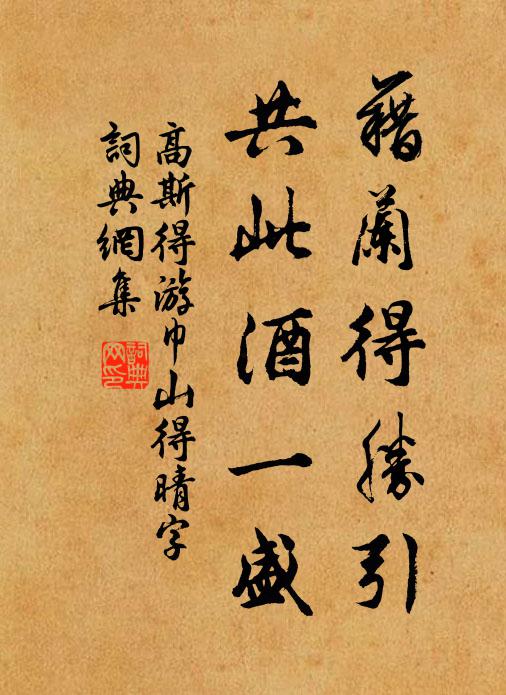 藉蘭得勝引
共此酒一盛
高斯得游巾山得晴字
詞典網集
詞典網印